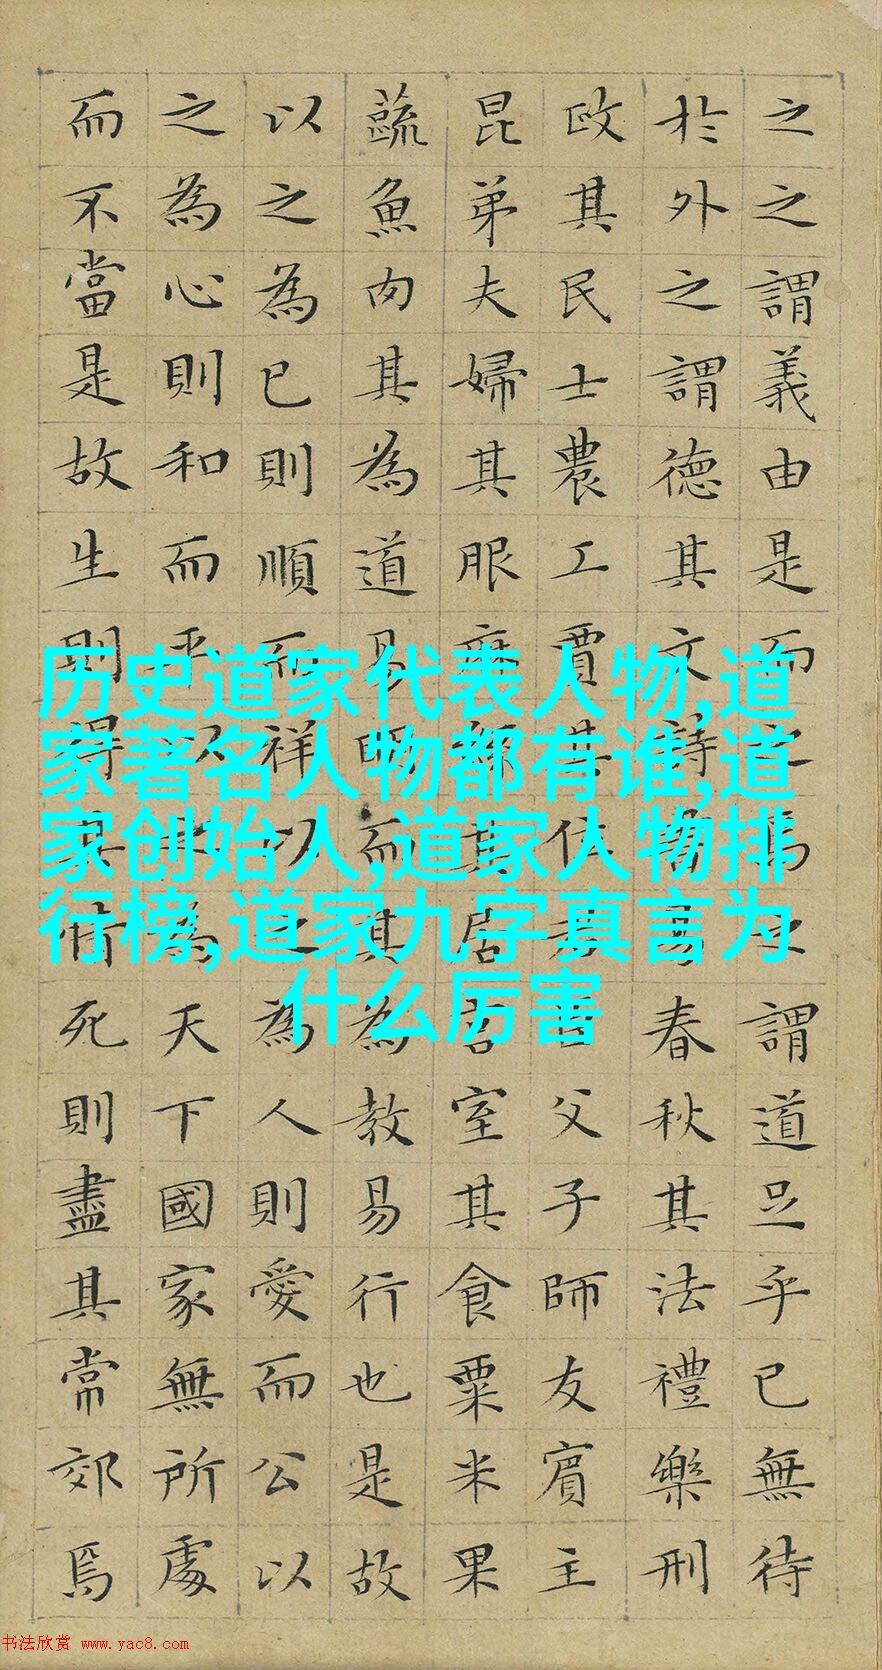 之之謂義由是而之焉之謂道足乎已無待
於外之謂德其文詩書易春秋其法禮樂刑
政其民士農工賈其位君臣父子師友賓主
昆弟夫婦其服麻絲其居宮室其食粟米果
蔬魚肉其為道易明而其為教易行也是故
以之為已則順而祥以之為人則愛而公以
之為心則和而平以之為天下國家無所處
而不當是故生則得其情死則盡其常郊焉
历史道家代表人物,道
家著名人物都有谁,道
家创始人,道家人物排
行榜,道家九字真言为
什么厉害
书法欣赏 www.yac8.com